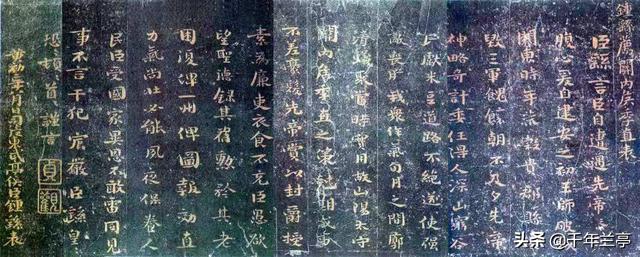 鍾繇薦關內侯季直表
臣繇言臣自遭遇先帝忝
腹心爰自建安之初王師破
關東時年荒穀貴郡縣殘
毀三軍餽饟朝不及夕先帝
神略奇計委任得人深山窮谷
民獻米豆道路不絕遂使強
敵喪膽我眾作氣旬月之間廓
清蟻聚當時實用故山陽太守
關內侯季直之策剋期成事
不差豪髮先帝賞以封爵授
素為廉吏衣食不充臣愚欲
望聖德錄其舊勳矜其老
困復俾一州俾圖報效直
力氣尚壯必能夙夜保養人
民臣受國家異恩不敢雷同見
事不言干犯宸嚴臣繇皇
恐頓首謹言
貞觀
黃初二年八月日司徒東武亭侯臣鍾繇表
头条 @千年兰亭